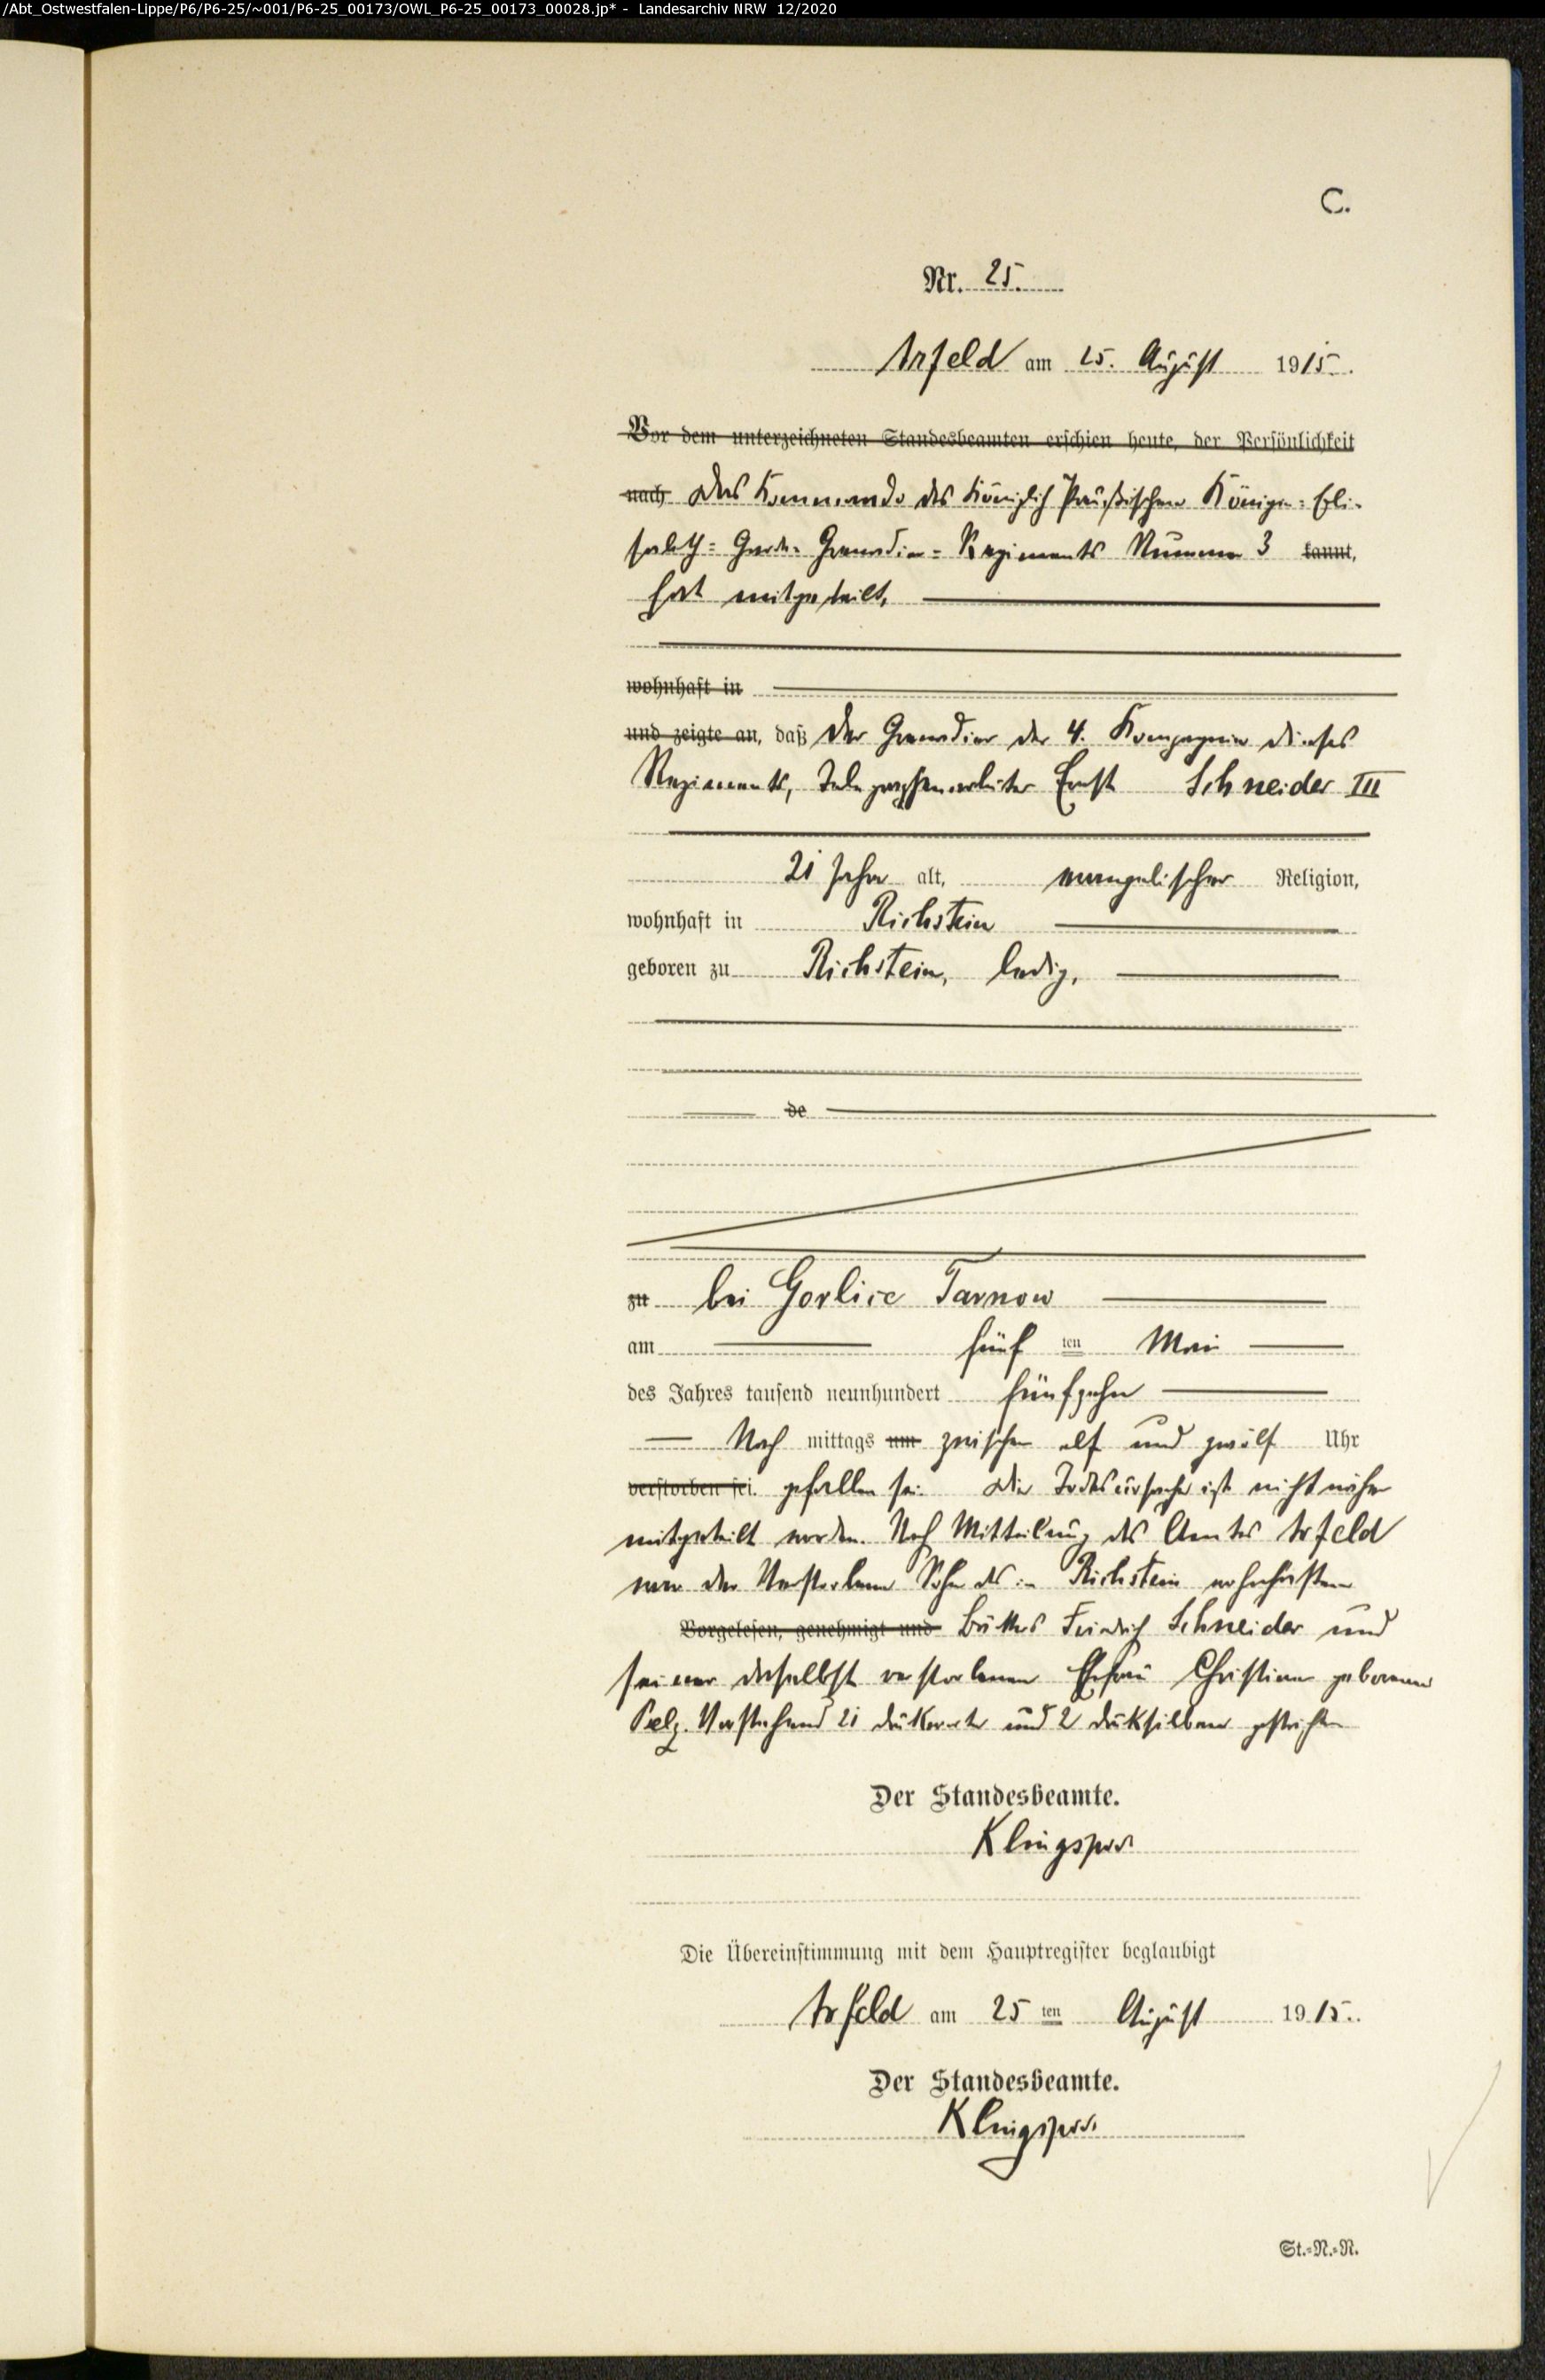 /Abt_Ostwestfalen-Lippe/P6/P6-25/~001/P6-25_00173/OWL_P6-25_00173_00028.jp* - Landesarchiv NRW 12/2020
C.
Nr. 25.
Arfeld am 25. August 1915.
Vor dem unterzeichneten Standesbeamten erschien heute, der Persönlichkeit
nach Das Kommando des Königlich Preußischen Königin-Eli-
sabeth-Garde-Grenadier-Regiments Nummer 3 kannt,
hat mitgeteilt,
wohnhaft in
und zeigte an, daß der Grenadier der 4. Kompagnie dieses
Regiments, Telegraphenarbeiter Ernst Schneider III
21 Jahre alt, evangelischer Religion,
wohnhaft in Richstein
geboren zu Richstein, ledig,
de
zu bei Gorlice Tarnow
am fünf ten Mai
des Jahres tausend neunhundert fünfzehn
Nach mittags um zwischen elf und zwölf Uhr
verstorben sei. gefallen sei. Die Todesursache ist nicht näher
mitgeteilt worden. Nach Mitteilung des Amtes Arfeld
war der Verstorbene Sohn des in Richstein wohnhaften
Vorgelesen, genehmigt und Friedrich Schneider und
seiner daselbst verstorbenen Ehefrau Christiane geborenen
Pelz. Vorstehend 21 Druckworte und 2 Drucksilben gestrichen
Der Standesbeamte.
Klingspor
Die Übereinstimmung mit dem Hauptregister beglaubigt
Arfeld am 25 ten August 1915.
Der Standesbeamte.
Klingspor
St.-N.-R.